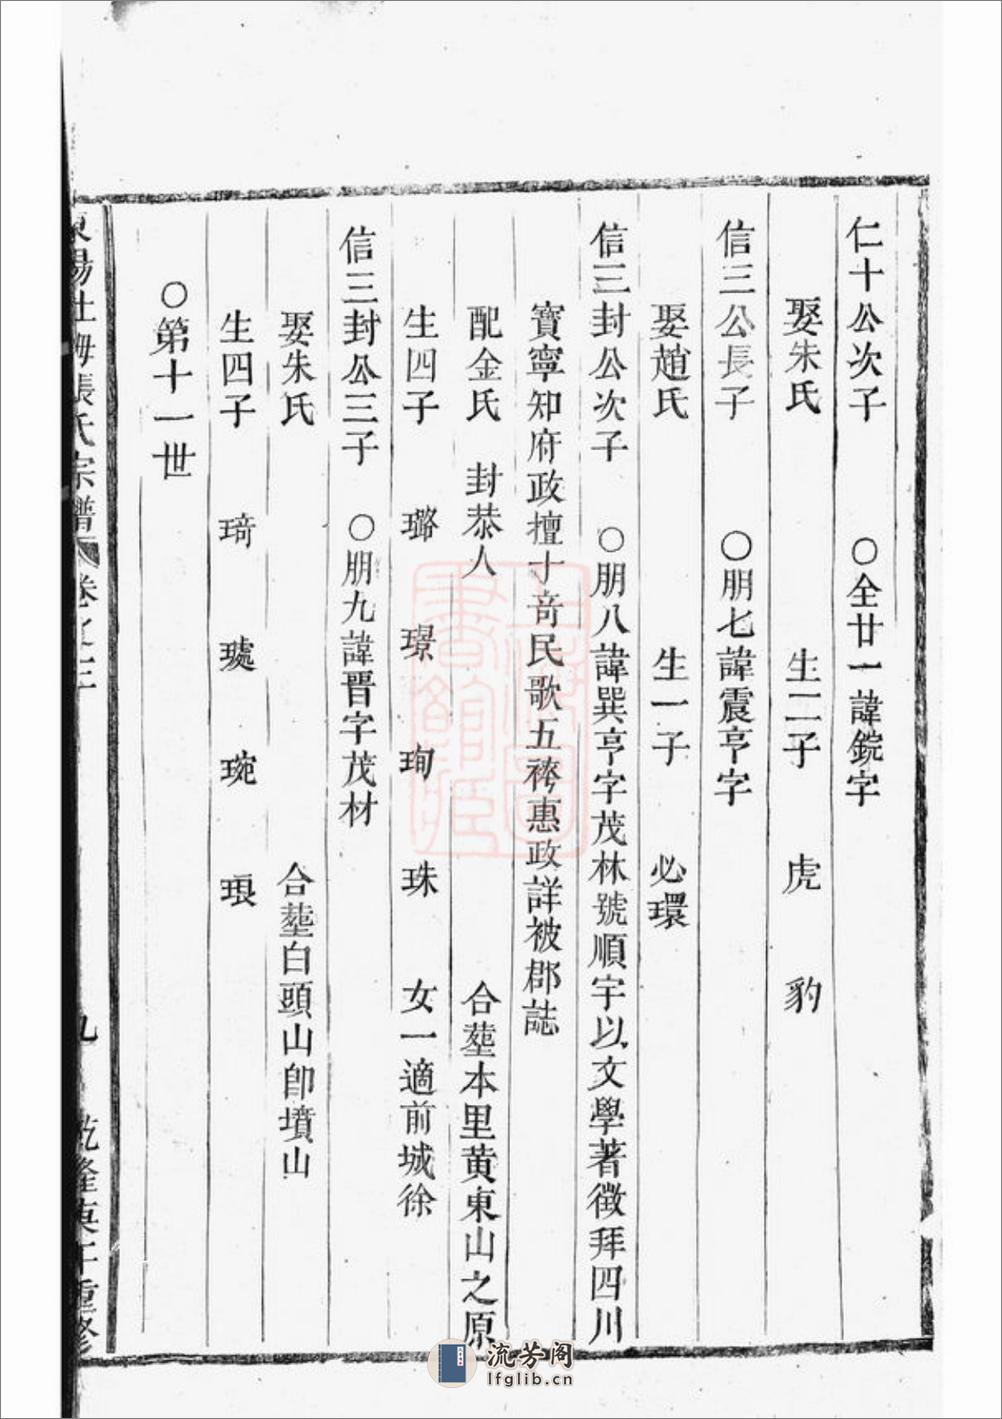 仁十公次子 ○全廿一諱鋎字
娶朱氏 生二子 虎 豹
信三公長子 ○朋七諱震亨字
娶趙氏 生一子 必環
信三封公次子 ○朋八諱巽亨字茂林號順宇以文學著徵拜四川
寶寧知府政擅十竒民歌五袴惠政詳被郡誌
配金氏 封恭人 合塟本里黄東山之原
生四子 璐 璟 珣 珠 女一適前城徐
信三封公三子 ○朋九諱晋字茂材
娶朱氏 合塟白頭山卽墳山
生四子 琦 琥 琬 琅
○第十一世
張氏宗譜 卷之三 九 乾隆庚午重修
流芳阁
lfglib.cn